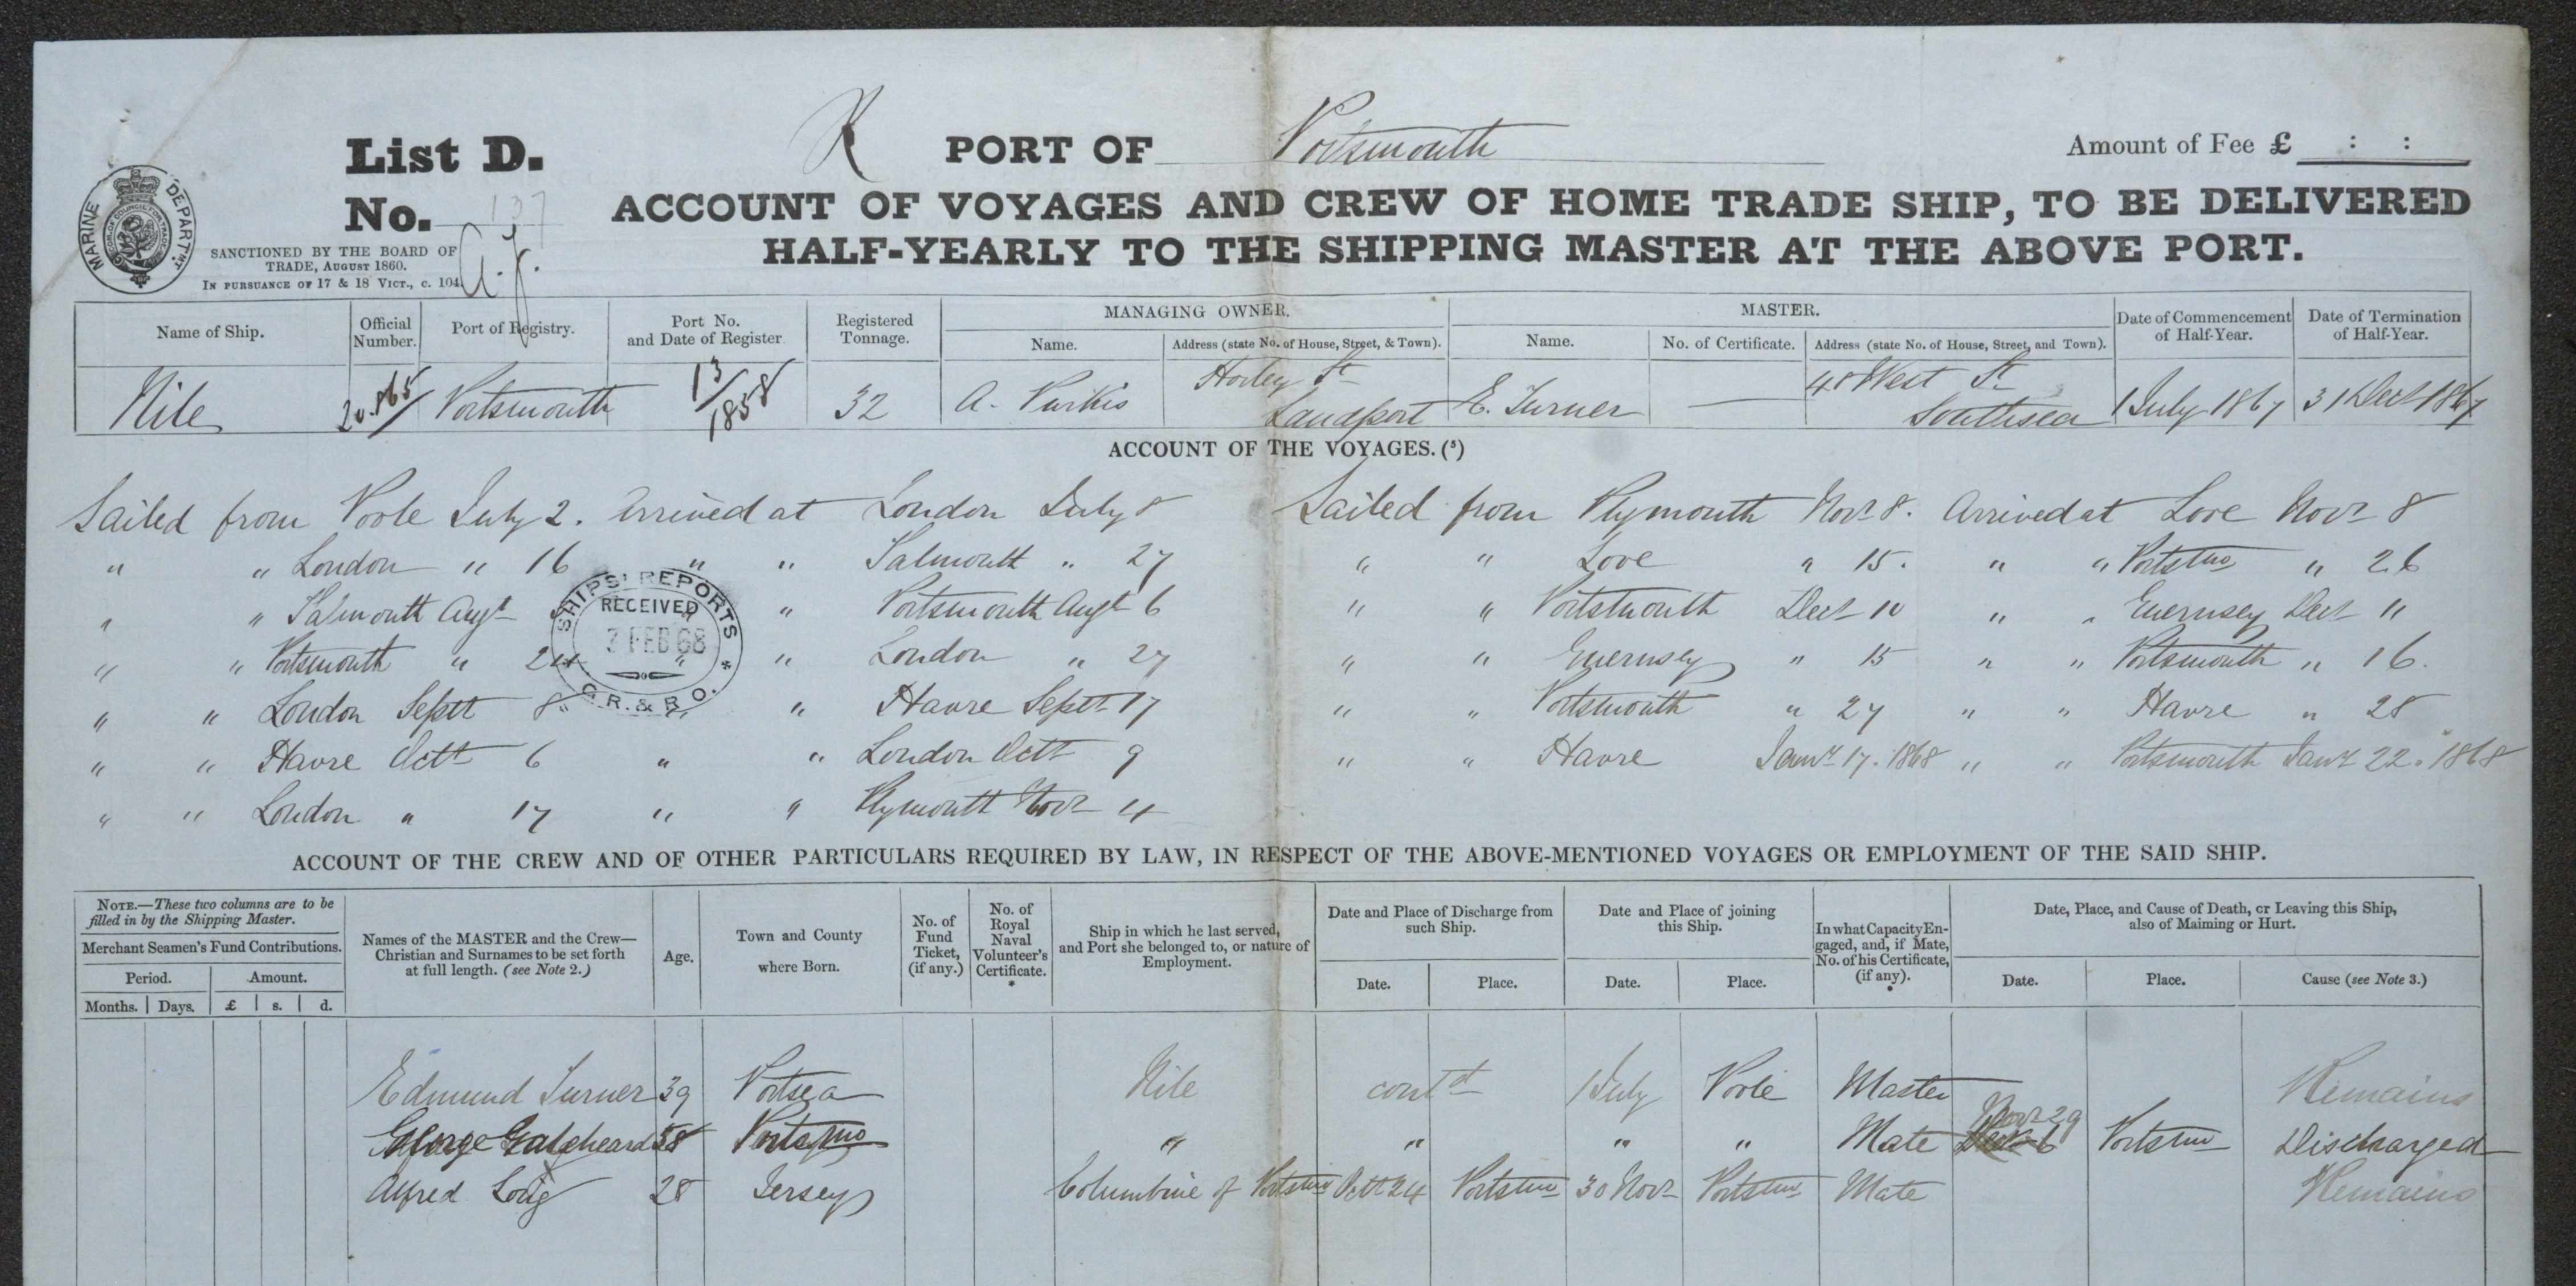 List D.
R PORT OF Portsmouth
Amount of Fee £ : :
No. 137
A.J.
MARINE DEPARTMT.
SANCTIONED BY THE BOARD OF
TRADE, AUGUST 1860.
IN PURSUANCE OF 17 & 18 VICT., C. 104
ACCOUNT OF VOYAGES AND CREW OF HOME TRADE SHIP, TO BE DELIVERED
HALF-YEARLY TO THE SHIPPING MASTER AT THE ABOVE PORT.
Name of Ship. Official Number. Port of Registry. Port No. and Date of Register Registered Tonnage. MANAGING OWNER. Name. Address (state No. of House, Street, & Town). MASTER. Name. No. of Certificate. Address (state No. of House, Street, and Town). Date of Commencement of Half-Year. Date of Termination of Half-Year.
Nile 20.865 Portsmouth 13/1858 32 A. Purkis St Landport E. Turner — 48 West St Southsea 1 July 1867 31 Dect 1867
ACCOUNT OF THE VOYAGES.(⁵)
Sailed from Poole July 2. Arrived at London July 8
" " London " 16 " " Falmouth " 27
" " Falmouth Augt " Portsmouth Augt 6
" " Portsmouth " 24 " " London " 27
" " London Septt 8 " " Havre Septt 17
" " Havre Octt 6 " " London Octt 9
" " London " 17 " " Plymouth Novr 4
SHIPS' REPORTS
RECEIVED
3 FEB 68
G. R. & R. O.
Sailed from Plymouth Novr 8. Arrived at Looe Novr 8
" " Looe " 15. " " Portsmo " 26
" " Portsmouth Dect 10 " " Guernsey Dect 11
" " Guernsey " 15 " " Portsmouth " 16.
" " Portsmouth " 27 " " Havre " 28
" " Havre Jany 17. 1868 " " Portsmouth Jany 22. 1868
ACCOUNT OF THE CREW AND OF OTHER PARTICULARS REQUIRED BY LAW, IN RESPECT OF THE ABOVE-MENTIONED VOYAGES OR EMPLOYMENT OF THE SAID SHIP.
NOTE.—These two columns are to be
filled in by the Shipping Master.
Merchant Seamen's Fund Contributions.
Period. Amount.
Months. Days. £ s. d.
Names of the MASTER and the Crew—
Christian and Surnames to be set forth
at full length. (see Note 2.)
Age.
Town and County
where Born.
No. of
Fund
Ticket,
(if any.)
No. of
Royal
Naval
Volunteer's
Certificate.
*
Ship in which he last served,
and Port she belonged to, or nature of
Employment.
Date and Place of Discharge from
such Ship.
Date. Place.
Date and Place of joining
this Ship.
Date. Place.
In what Capacity En-
gaged, and, if Mate,
No. of his Certificate,
(if any).
*
Date, Place, and Cause of Death, or Leaving this Ship,
also of Maiming or Hurt.
Date. Place. Cause (see Note 3.)
Edmund Turner 39 Portsea Nile contd 1 July Poole Master Remains
George 58 Portsmo " " " " Mate Novr 29 Portsmo Discharged
Alfred Long 28 Jersey Columbine of Portsmo Octt 24 Portsmo 30 Novr Portsmo Mate Remains